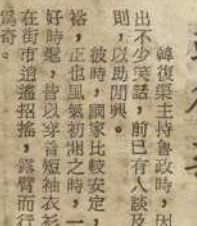 韓復榘主持魯政時，因
出不少笑話，前已有人談及
則，以助閒興。
彼時，國家比較安定，
裕，正也風氣初開之時，一
好時髦，皆以穿着短袖衣衫
在街市逍遙招搖，露臂而行
爲奇。